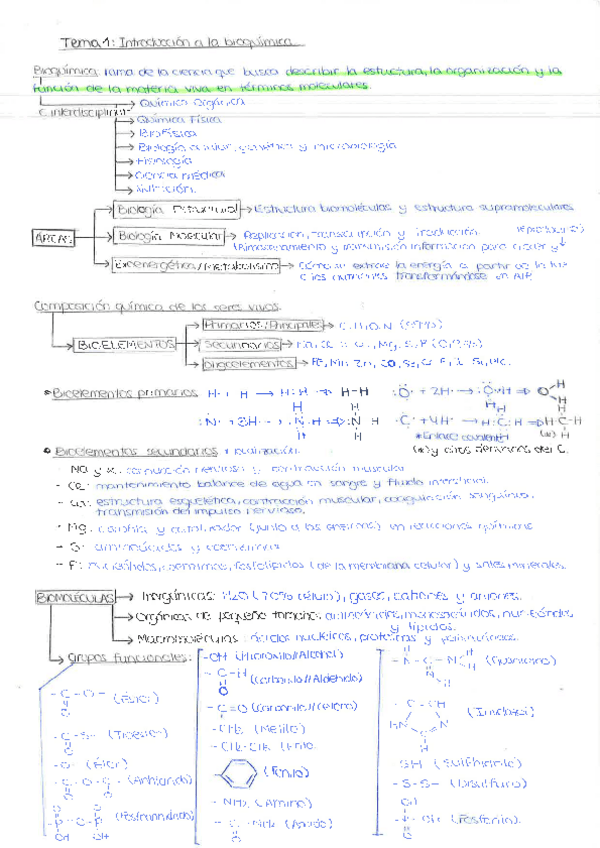 Tema 1: Introducción a la bioquímica
Bioquímica: rama de la ciencia que busca describir la estructura, la organización y la
función de la materia viva en términos moleculares.
C. interdisciplinar
Química Orgánica
Química Física
Biofísica
Biología celular, genética y microbiología
Fisiología
Ciencia médica
Nutrición.
ÁREAS
Biología Estructural → Estructura biomoléculas y estructura supramoleculares
Biología Molecular → Replicación, transcripción y traducción.
Almacenamiento y transmisión información para crecer y
Bioenergética/Metabolismo → Cómo se extrae la energía a partir de la luz
o los nutrientes transformándose en ATP.
Composición química de los seres vivos.
BIOELEMENTOS
Primarios/Principales → C, H, O, N
Secundarios → Na, K, Ca, Cl, Mg, S, P
Oligoelementos → Fe, Mn, Zn,
Bioelementos primarios H· + H → H:H → H-H
*Enlace covalente
(*) y otros derivados del C.
Bioelementos secundarios: localización.
- Na y K: conducción nerviosa y contracción muscular
- Cl: mantenimiento balance de agua en sangre y fluido intersticial.
- Ca: estructura esquelética, contracción muscular, coagulación sanguínea,
transmisión del impulso nervioso.
- Mg: clorofila y catalizador (junto a las enzimas) en reacciones químicas
- S: aminoácidos y coenzimas
- P: nucleótidos, coenzimas, fosfolípidos (de la membrana celular) y sales minerales.
BIOMOLÉCULAS → Inorgánicas: H2O (70% célula), gases, cationes y aniones.
Orgánicas de pequeño tamaño: aminoácidos, monosacáridos, nucleótidos
y lípidos.
Macromoléculas: ácidos nucleicos, proteínas y polisacáridos.
Grupos funcionales:
-OH (Hidroxilo//Alcohol)
-C-H (Carbonilo//Aldehído)
O
-C=O (Carbonilo//Cetona)
-CH3 (Metilo)
-CH2-CH3 (Etilo)
(Fenilo)
-NH2 (Amino)
-C-NH2 (Amida)
-C-O- (Éster)
-C-S- (Tioéster)
-O- (Éter)
-C-O-C- (Anhídrido)
(Guanidino)
(Imidazol)
-SH (Sulfhidrilo)
-S-S- (Disulfuro)
(Fosforilo).